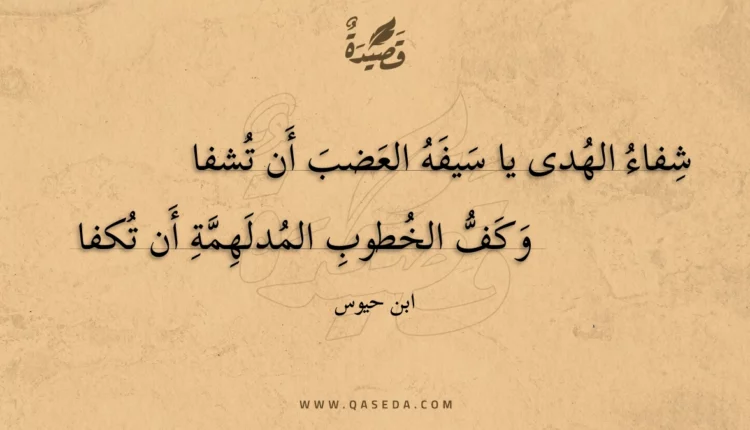 قَصِيْدَةٌ
شِفاءُ الهُدى يا سَيفَهُ العَضبَ أَن تُشفا
وَكَفُّ الخُطوبِ المُدلَهِمَّةِ أَن تُكفا
ابن حيوس
WWW.QASEDA.COM